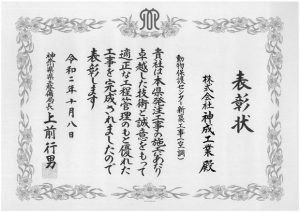 表彰状
株式会社神成工業殿
動物保護センター新築工事(空調)
貴社は本県発注工事の施工にあたり
卓越した技術と誠意をもって
適正な工程管理のもと優れた
工事を完成されましたので
表彰します
令和二年十月八日
神奈川県県土整備局長
上前行男